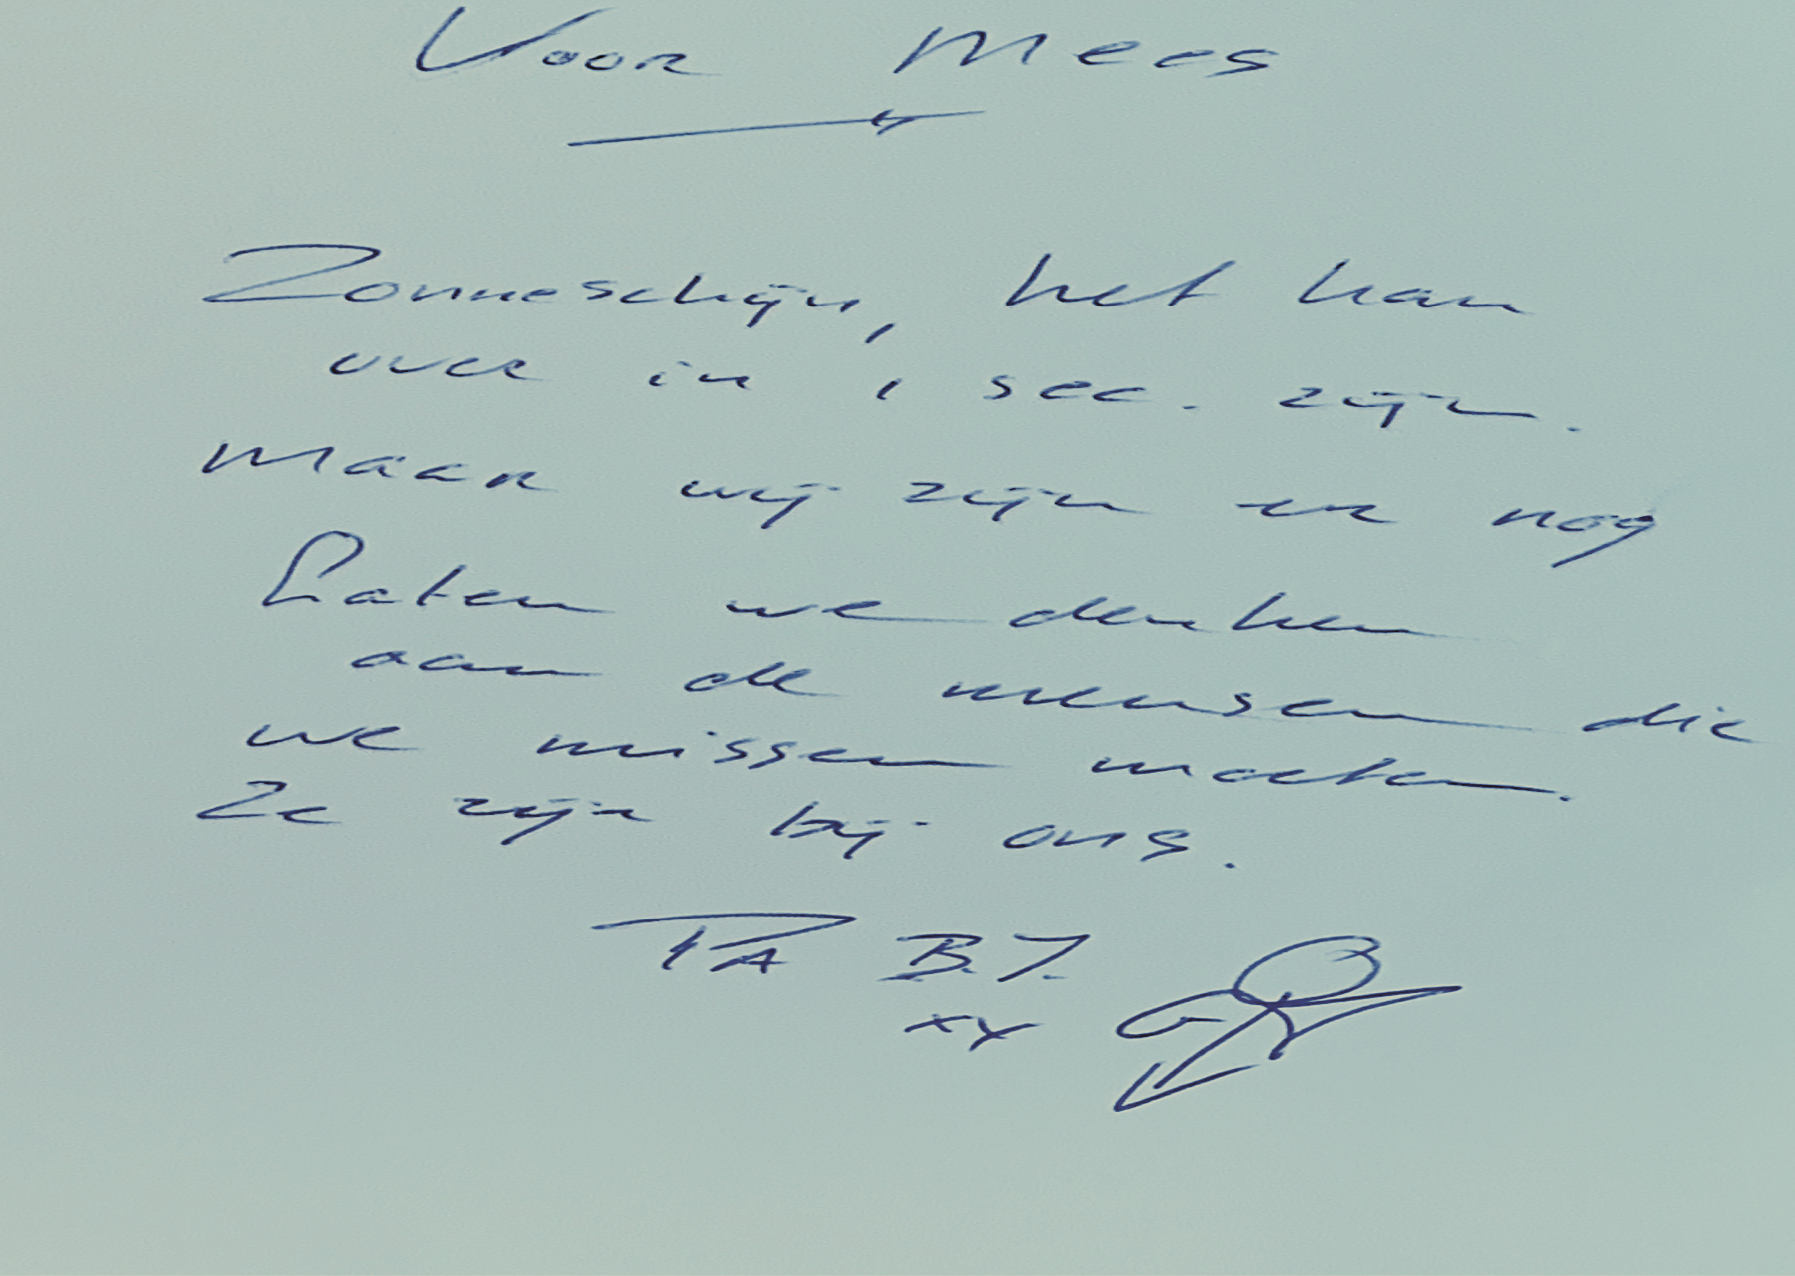 Voor Mees
Zonneschijn, het kan
over in 1 sec. zijn.
Maar wij zijn er nog
Laten we denken
aan de mensen die
we missen moeten.
Ze zijn bij ons.
PA B.J.
xx